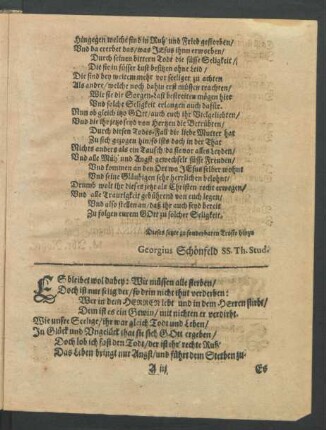 Hingegen welche sind in Ruh' und Fried gestorben/
Und da ererbet das/was JEsus ihnn erworben/
Durch seinen bittern Todt die süsse Seligkeit/
Die sie in süsser Lust besitzen ohne leid/
Die sind bey weitem mehr vor seeliger zu achten
Als andre/ welche noch dahin erst müssen trachten/
Wie sie die Sorgen-Last bestreiten mögen hier
Und solche Seligkeit erlangen auch dafür.
Nun ob gleich itzo GOtt/ auch euch ihr Vielgeliebten/
Und die ihr jetzo seyd von Hertzen die Betrübten/
Durch diesen Todes-Fall die liebe Mutter hat
Zu sich gezogen hin/so ists doch in der That
Nichts anders als ein Tausch/da sie vor alles Leyden/
Und alle Müh' und Angst gewechselt süsse Freuden/
Und kommen an den Ort wo JEsus selber wohnt
Und seine Gläubigen sehr herrlichen belohnt/
Drumb wolt ihr dieses jetzt als Christen recht erwegen/
Und alle Traurigkeit gebührend von euch legen/
Und also stellen an/ daß ihr auch seyd bereit
Zu folgen eurem GOtt zu solcher Seligkeit.
Dieses setzte zu sonderbaren Troste hinzu
Georgius Schönfeld SS. Th. Stud.
ES bleibet wol dabey: Wir müssen alle sterben/
Doch ist nur selig der/ so drin nicht thut verderben:
Wer in dem HERREN lebt und in dem HErren stirbt/
Dem ist es ein Gewin/ mit nichten er verdirbt.
Wie unsre Seelige/ ihr war gleich Todt und Leben/
In Glück und Unglück that sie sich GOtt ergeben/
Doch lob ich fast den Todt/ der ist ihr' rechte Ruh/
Das Leben bringt nur Angst/und führt dem Sterben zu.
A iij
Es